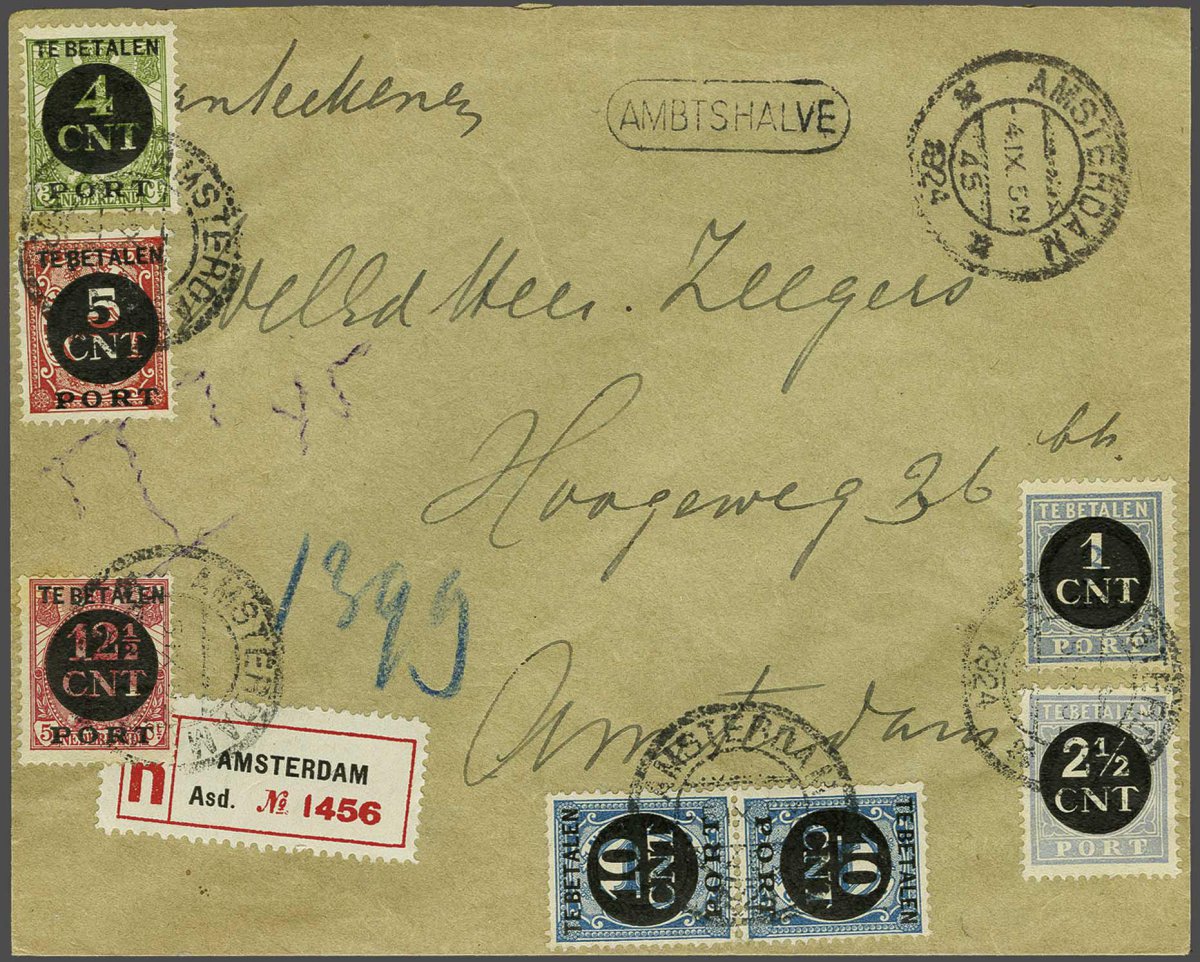 TE BETALEN
4
CNT
PORT
NEDERLAND
Aanteekenen
AMBTSHALVE
AMSTERDAM
-4.IX.5N
45
1924
AMSTERDAM
TE BETALEN
5
CNT
PORT
WelEd Heer. Zeegers
Hoogeweg 36 bh.
Amsterdam
1399
TE BETALEN
1
CNT
PORT
1924
TE BETALEN
2½
CNT
PORT
TE BETALEN
12½
CNT
PORT
NEDERLAND
AMSTERDAM
R
AMSTERDAM
Asd. № 1456
AMSTERDAM
TE BETALEN
10
CNT
PORT
TE BETALEN
10
CNT
PORT